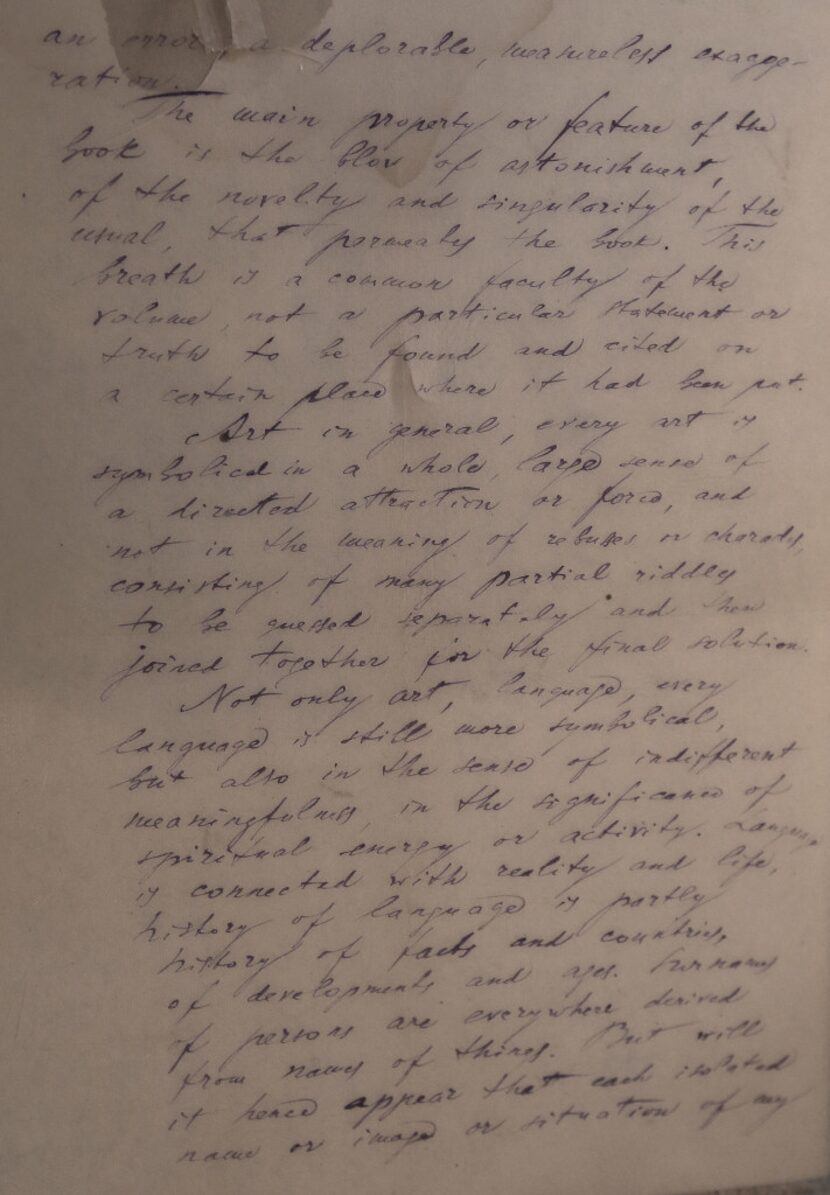 an error, a deplorable, measureless exagge-
ration.
The main property or feature of the
book is the blow of astonishment,
of the novelty and singularity of the
usual, that permeates the book. This
breath is a common faculty of the
volume, not a particular statement or
truth to be found and cited on
a certain place where it had been put.
Art in general, every art is
symbolical in a whole, large sense of
a directed attraction or force, and
not in the meaning of rebuses or charades,
consisting of many partial riddles
to be guessed separately and then
joined together for the final solution.
Not only art, language, every
language is still more symbolical,
but also in the sense of indifferent
meaningfulness, in the significance of
spiritual energy or activity. Language
is connected with reality and life,
history of language is partly
history of facts and countries,
of developments and ages. Surnames
of persons are everywhere derived
from names of things. But will
it hence appear that each isolated
name or image or situation of my